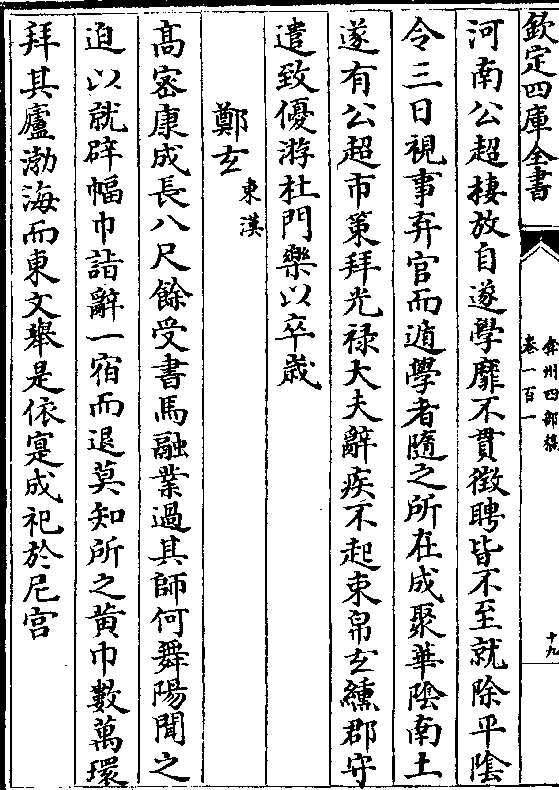 欽定四庫全書
弇州四部稿
卷一百一
十九
河南公超棲放自遂學靡不貫徵聘皆不至就除平陰
令三日視事弃官而遁學者隨之所在成聚華陰南土
遂有公超市策拜光禄大夫辭疾不起束帛玄纁郡守
遣致優游杜門樂以卒歳
鄭玄
東漢
髙密康成長八尺餘受書馬融業過其師何舞陽聞之
迫以就辟幅巾詣辭一宿而退莫知所之黄巾數萬環
拜其廬渤海而東文舉是依寔成祀於尼宫